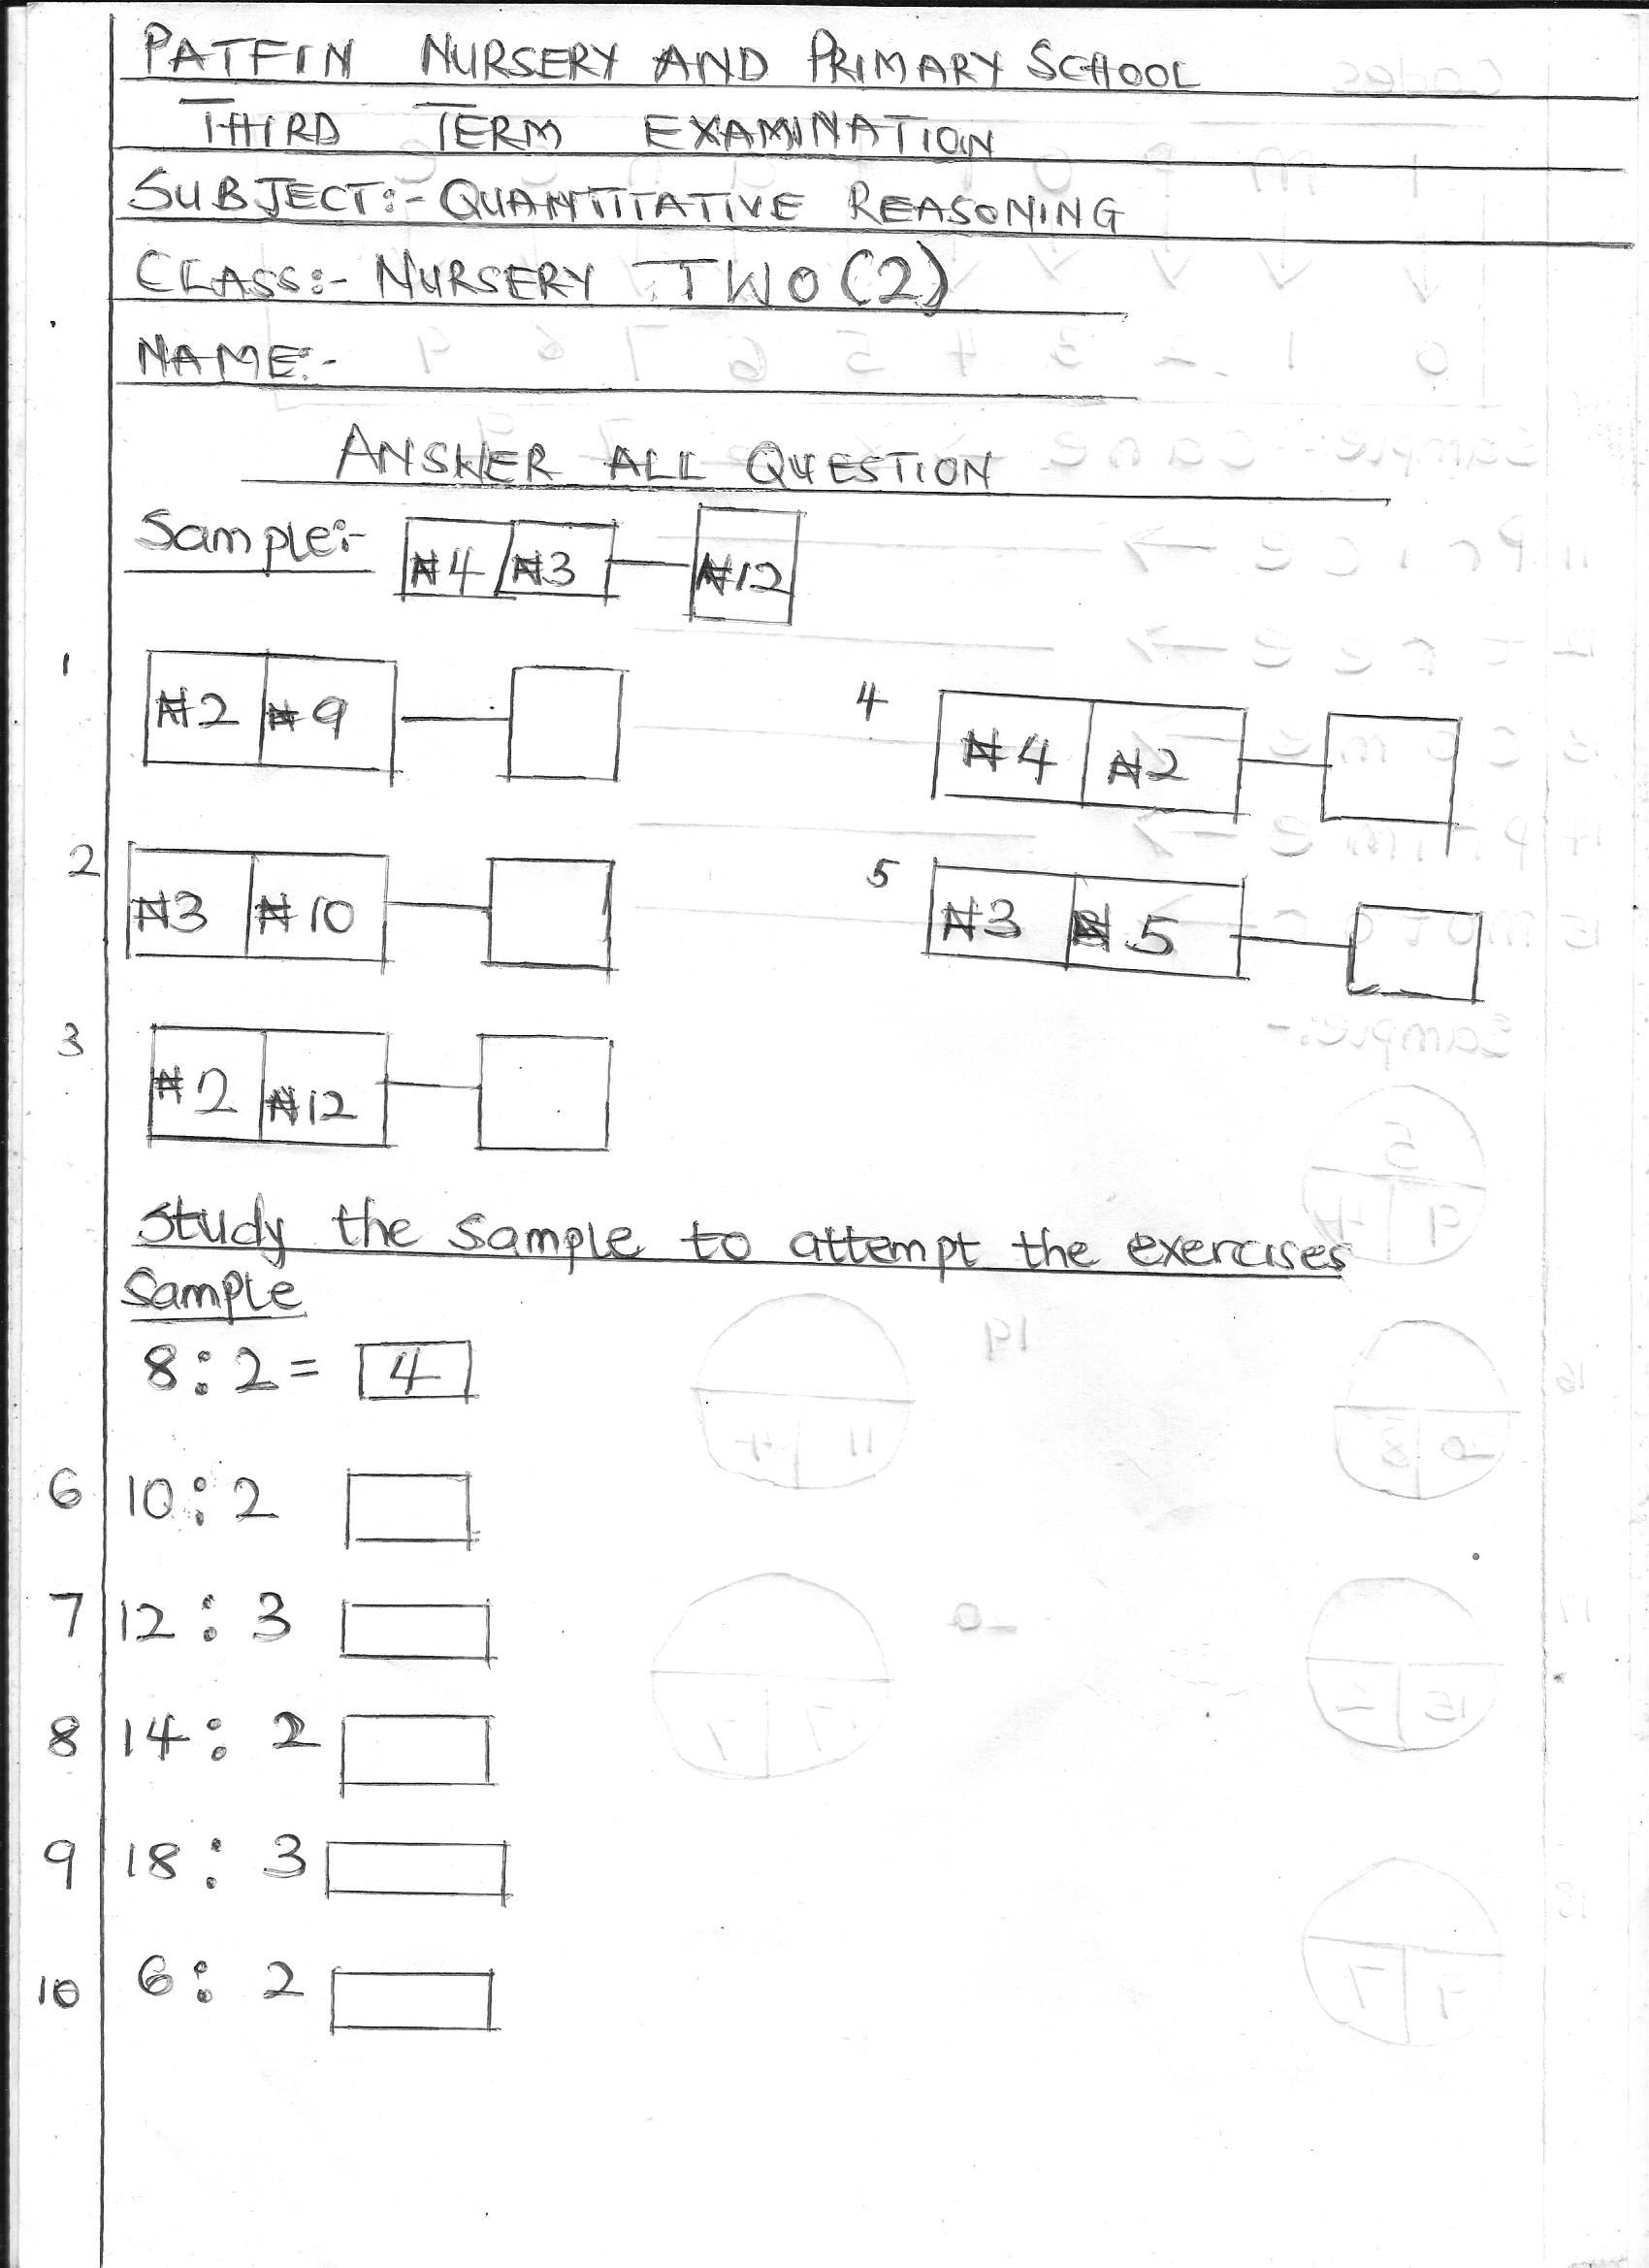 PATFIN NURSERY AND PRIMARY SCHOOL
THIRD TERM EXAMINATION
SUBJECT:- QUANTITATIVE REASONING
CLASS:- NURSERY TWO (2)
NAME:-
ANSWER ALL QUESTION
Sample:- ₦4 ₦3 ₦12
1 ₦2 ₦9
4 ₦4 ₦2
2 ₦3 ₦10
5 ₦3 ₦5
3 ₦2 ₦12
Study the sample to attempt the exercises
Sample
8 : 2 = 4
6 10 : 2
7 12 : 3
8 14 : 2
9 18 : 3
10 6 : 2